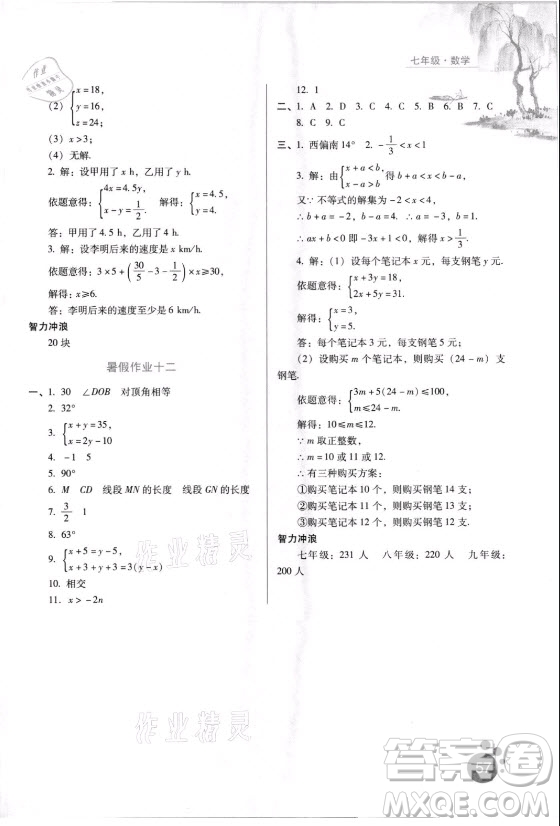 七年级·数学
(2) { x=18,
y=16,
z=24;
(3) x>3;
(4) 无解.
2. 解：设甲用了 x h，乙用了 y h.
依题意得：{ 4x=4y, x-y=1/2. 解得：{ x=4.5, y=4.
答：甲用了 4.5 h，乙用了 4 h.
3. 解：设李明后来的速度是 x km/h.
依题意得：3×5+(30/5-3-1/2)×x≥30.
解得：x≥6.
答：李明后来的速度至少是 6 km/h.
智力冲浪
20 块
暑假作业十二
一、1. 30 ∠DOB 对顶角相等
2. 32°
3. { x+y=35,
x=2y-10
4. -1 5
5. 90°
6. M CD 线段 MN 的长度 线段 GN 的长度
7. 3/2 1
8. 63°
9. { x+5=y-5,
x+3+y+3=3(y-x)
10. 相交
11. x>-2n
12. 1
二、1. A 2. D 3. A 4. C 5. B 6. B 7. C
8. C 9. C
三、1. 西偏南 14° 2. -1/3<x<1
3. 解：由{ x+a<b, x-b>a 得 a+b<x<b-a，
又∵ 不等式的解集为 -2<x<4，
∴ b+a=-2，b-a=4.
∴ ax+b<0 即 -3x+1<0，解得 x>1/3.
4. 解：(1) 设每个笔记本 x 元，每支钢笔 y 元.
依题意得：{ x+3y=18,
2x+5y=31.
解得：{ x=3,
y=5.
答：每个笔记本 3 元，每支钢笔 5 元.
(2) 设购买 m 个笔记本，则购买 (24-m) 支
钢笔.
依题意得：{ 3m+5(24-m)≤100,
m≤24-m.
解得：10≤m≤12.
∵ m 取正整数，
∴ m=10 或 11 或 12.
∴ 有三种购买方案：
①购买笔记本 10 个，则购买钢笔 14 支；
②购买笔记本 11 个，则购买钢笔 13 支；
③购买笔记本 12 个，则购买钢笔 12 支.
智力冲浪
七年级：231 人 八年级：220 人 九年级：
200 人
作业精灵
作业精灵
57
答案圈
MXQE.COM